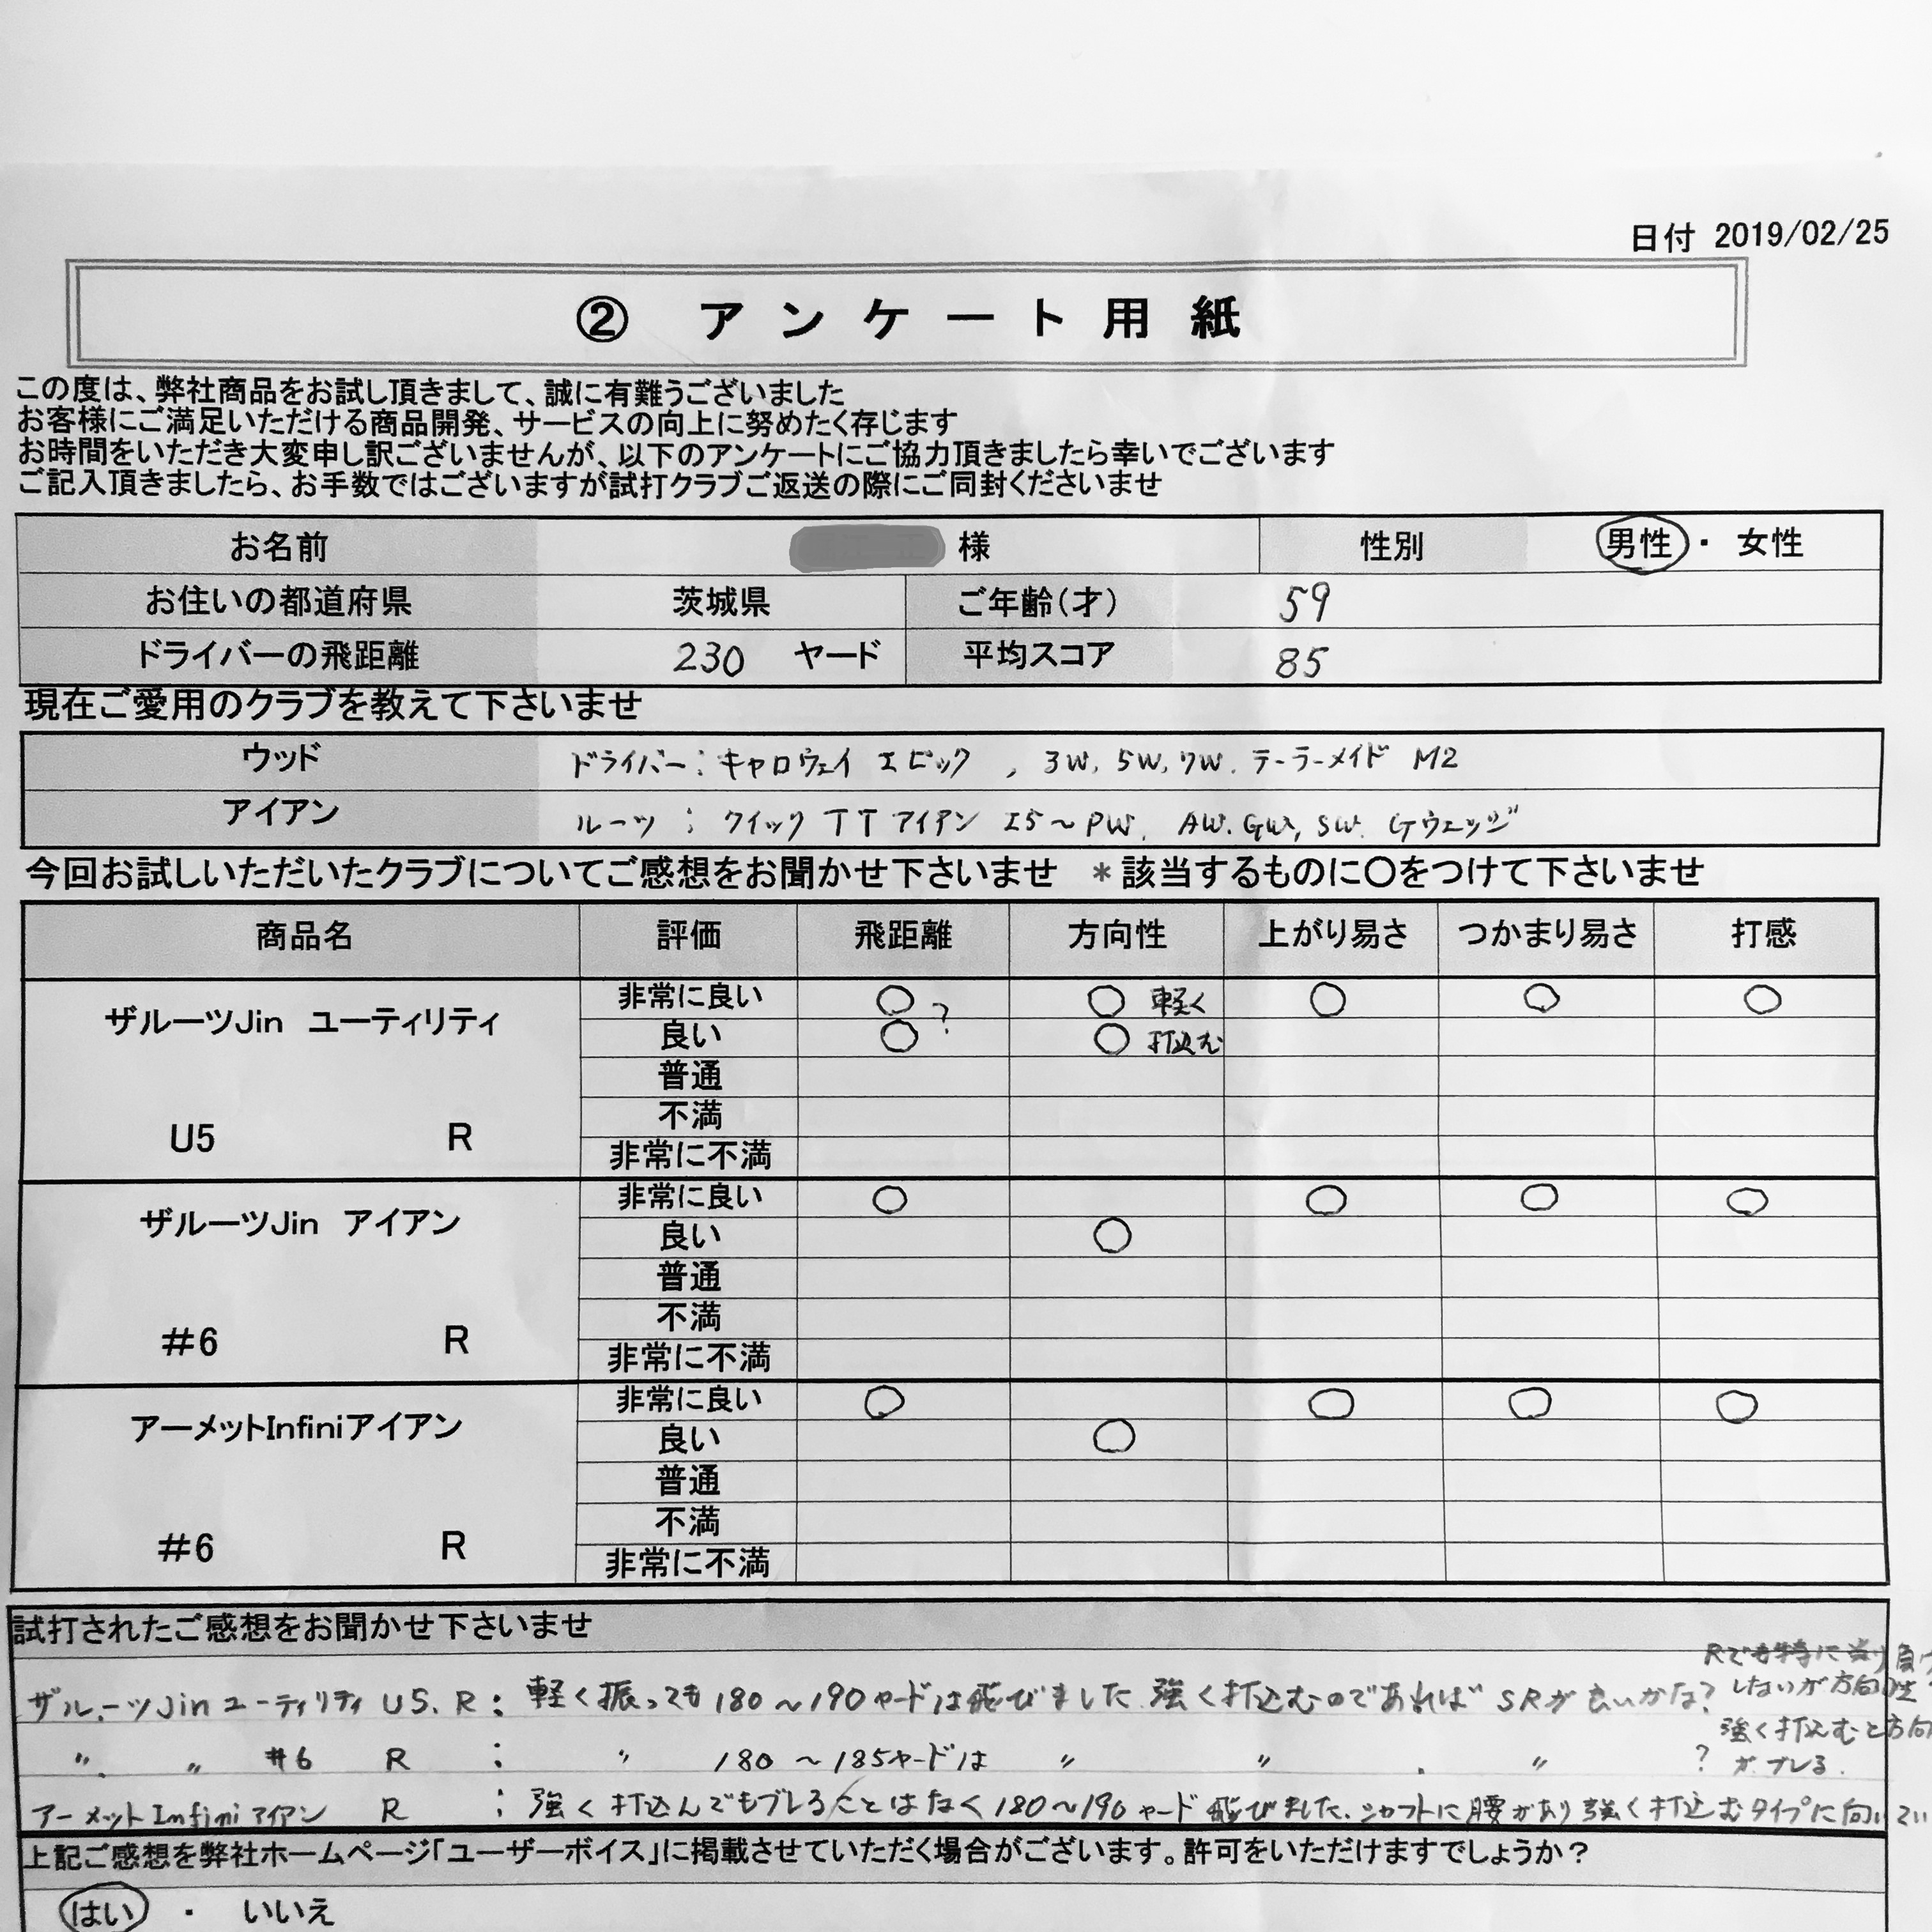 日付 2019/02/25
② アンケート用紙
この度は、弊社商品をお試し頂きまして、誠に有難うございました
お客様にご満足いただける商品開発、サービスの向上に努めたく存じます
お時間をいただき大変申し訳ございませんが、以下のアンケートにご協力頂きましたら幸いでございます
ご記入頂きましたら、お手数ではございますが試打クラブご返送の際にご同封くださいませ
お名前 様 性別 男性・女性
お住いの都道府県 茨城県 ご年齢(才) 59
ドライバーの飛距離 230 ヤード 平均スコア 85
現在ご愛用のクラブを教えて下さいませ
ウッド ドライバー：キャロウェイ エピック , 3W, 5W, 7W. テーラーメイド M2
アイアン ルーツ：クイック TT アイアン I5～PW. AW. GW, SW. Gウェッジ
今回お試しいただいたクラブについてご感想をお聞かせ下さいませ ＊該当するものに〇をつけて下さいませ
商品名 評価 飛距離 方向性 上がり易さ つかまり易さ 打感
ザルーツJin ユーティリティ
U5 R
非常に良い 〇 ? 〇 軽く 〇 〇 〇
良い 〇 〇 打込む
普通
不満
非常に不満
ザルーツJin アイアン
#6 R
非常に良い 〇 〇 〇 〇
良い 〇
普通
不満
非常に不満
アーメットInfiniアイアン
#6 R
非常に良い 〇 〇 〇 〇
良い 〇
普通
不満
非常に不満
試打されたご感想をお聞かせ下さいませ
ザルーツJinユーティリティ U5. R：軽く振っても180～190ヤードは飛びました 強く打込むのであればSRが良いかな?
Rでも特に当り負け
しないが方向性
〃 〃 #6 R ： 〃 180～185ヤードは 〃 〃 . 〃 ?
強く打込むと方向
がブレる.
アーメットInfiniアイアン R ：強く打込んでもブレることはなく180～190ヤード飛びました. シャフトに腰があり強く打込むタイプに向いてい
上記ご感想を弊社ホームページ「ユーザーボイス」に掲載させていただく場合がございます。許可をいただけますでしょうか？
はい ・ いいえ